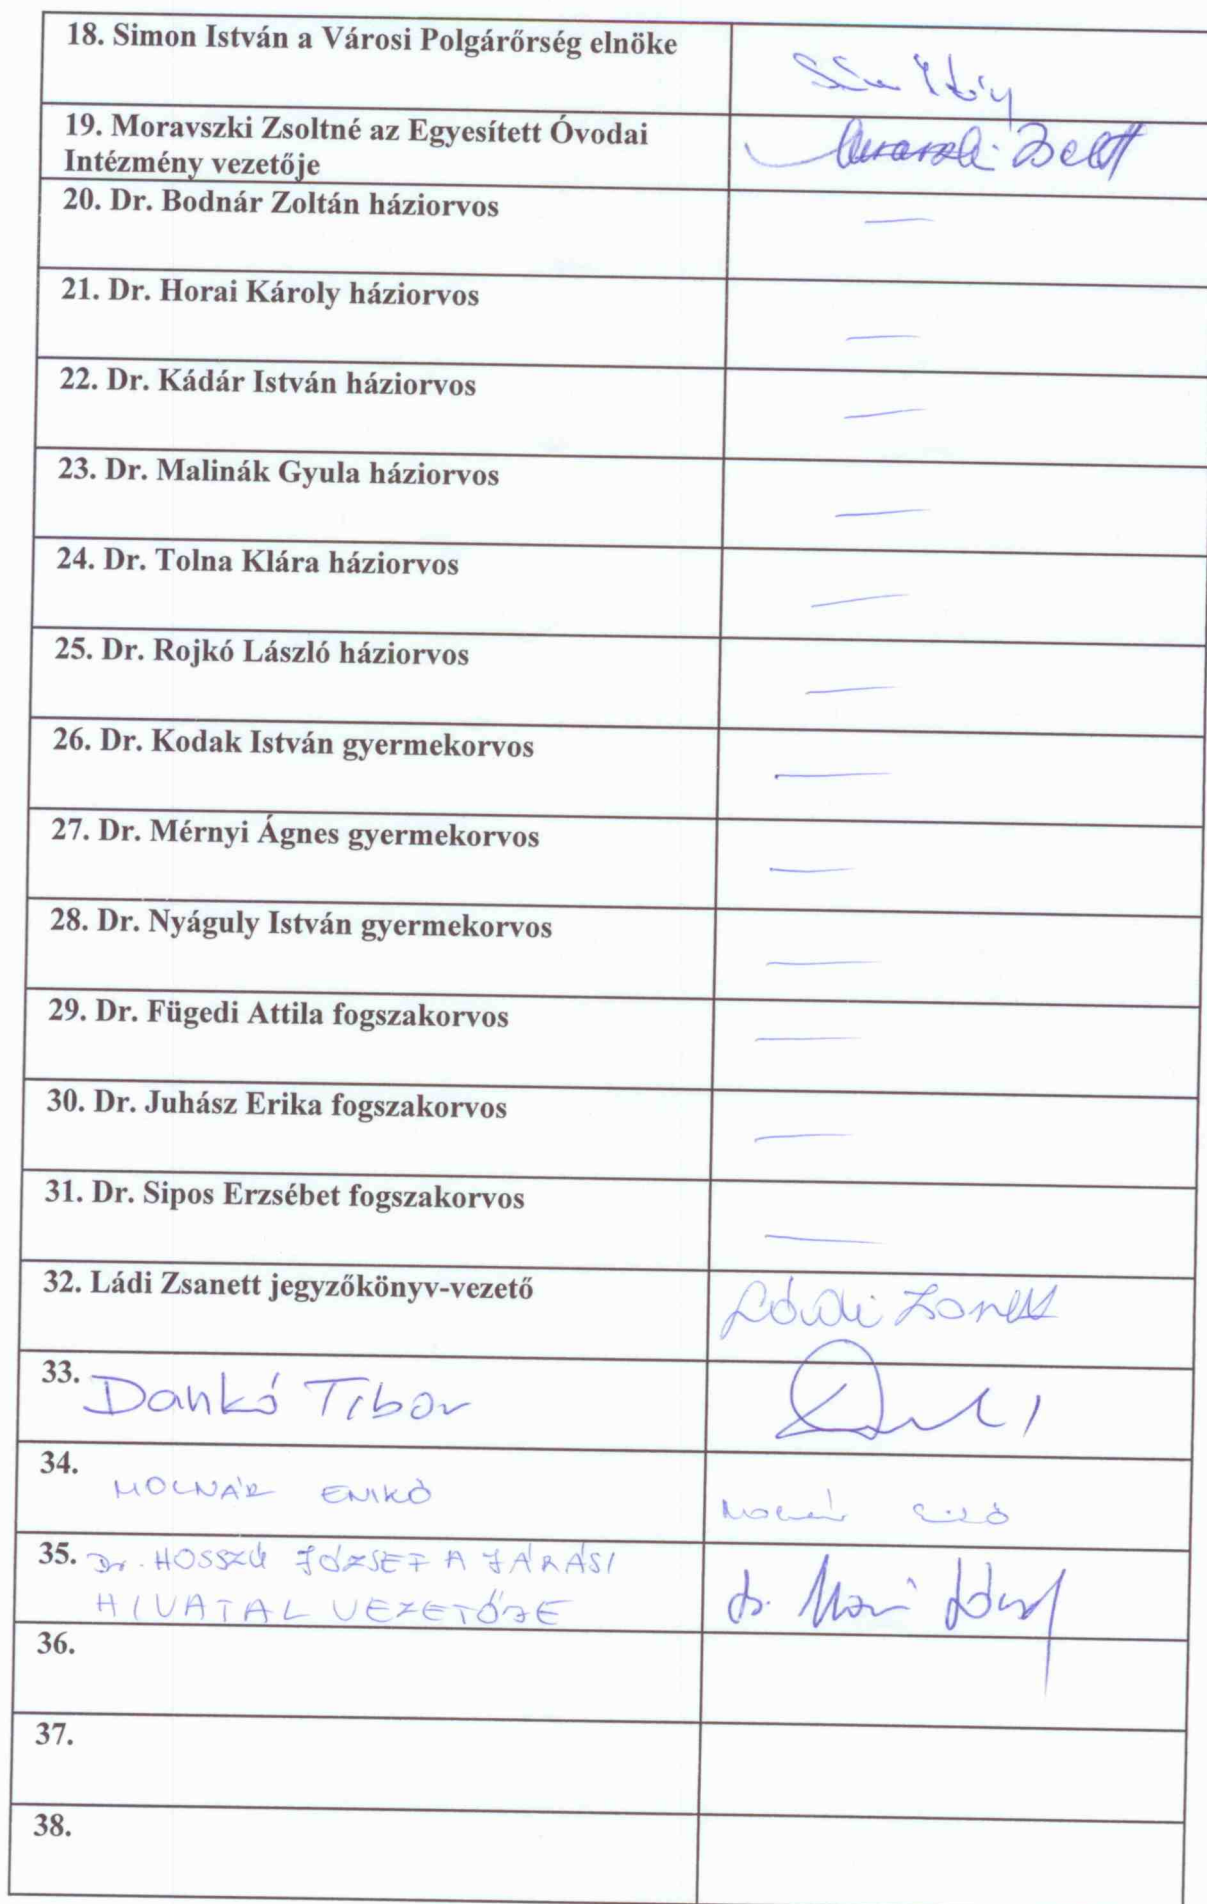 18. Simon István a Városi Polgárőrség elnöke
19. Moravszki Zsoltné az Egyesített Óvodai
Intézmény vezetője
20. Dr. Bodnár Zoltán háziorvos
21. Dr. Horai Károly háziorvos
22. Dr. Kádár István háziorvos
23. Dr. Malinák Gyula háziorvos
24. Dr. Tolna Klára háziorvos
25. Dr. Rojkó László háziorvos
26. Dr. Kodak István gyermekorvos
27. Dr. Mérnyi Ágnes gyermekorvos
28. Dr. Nyáguly István gyermekorvos
29. Dr. Fügedi Attila fogszakorvos
30. Dr. Juhász Erika fogszakorvos
31. Dr. Sipos Erzsébet fogszakorvos
32. Ládi Zsanett jegyzőkönyv-vezető
33. Dankó Tibor
34. MOLNÁR ENIKŐ
35. Dr. HOSSZÚ JÓZSEF A JÁRÁSI
HIVATAL VEZETŐJE
36.
37.
38.